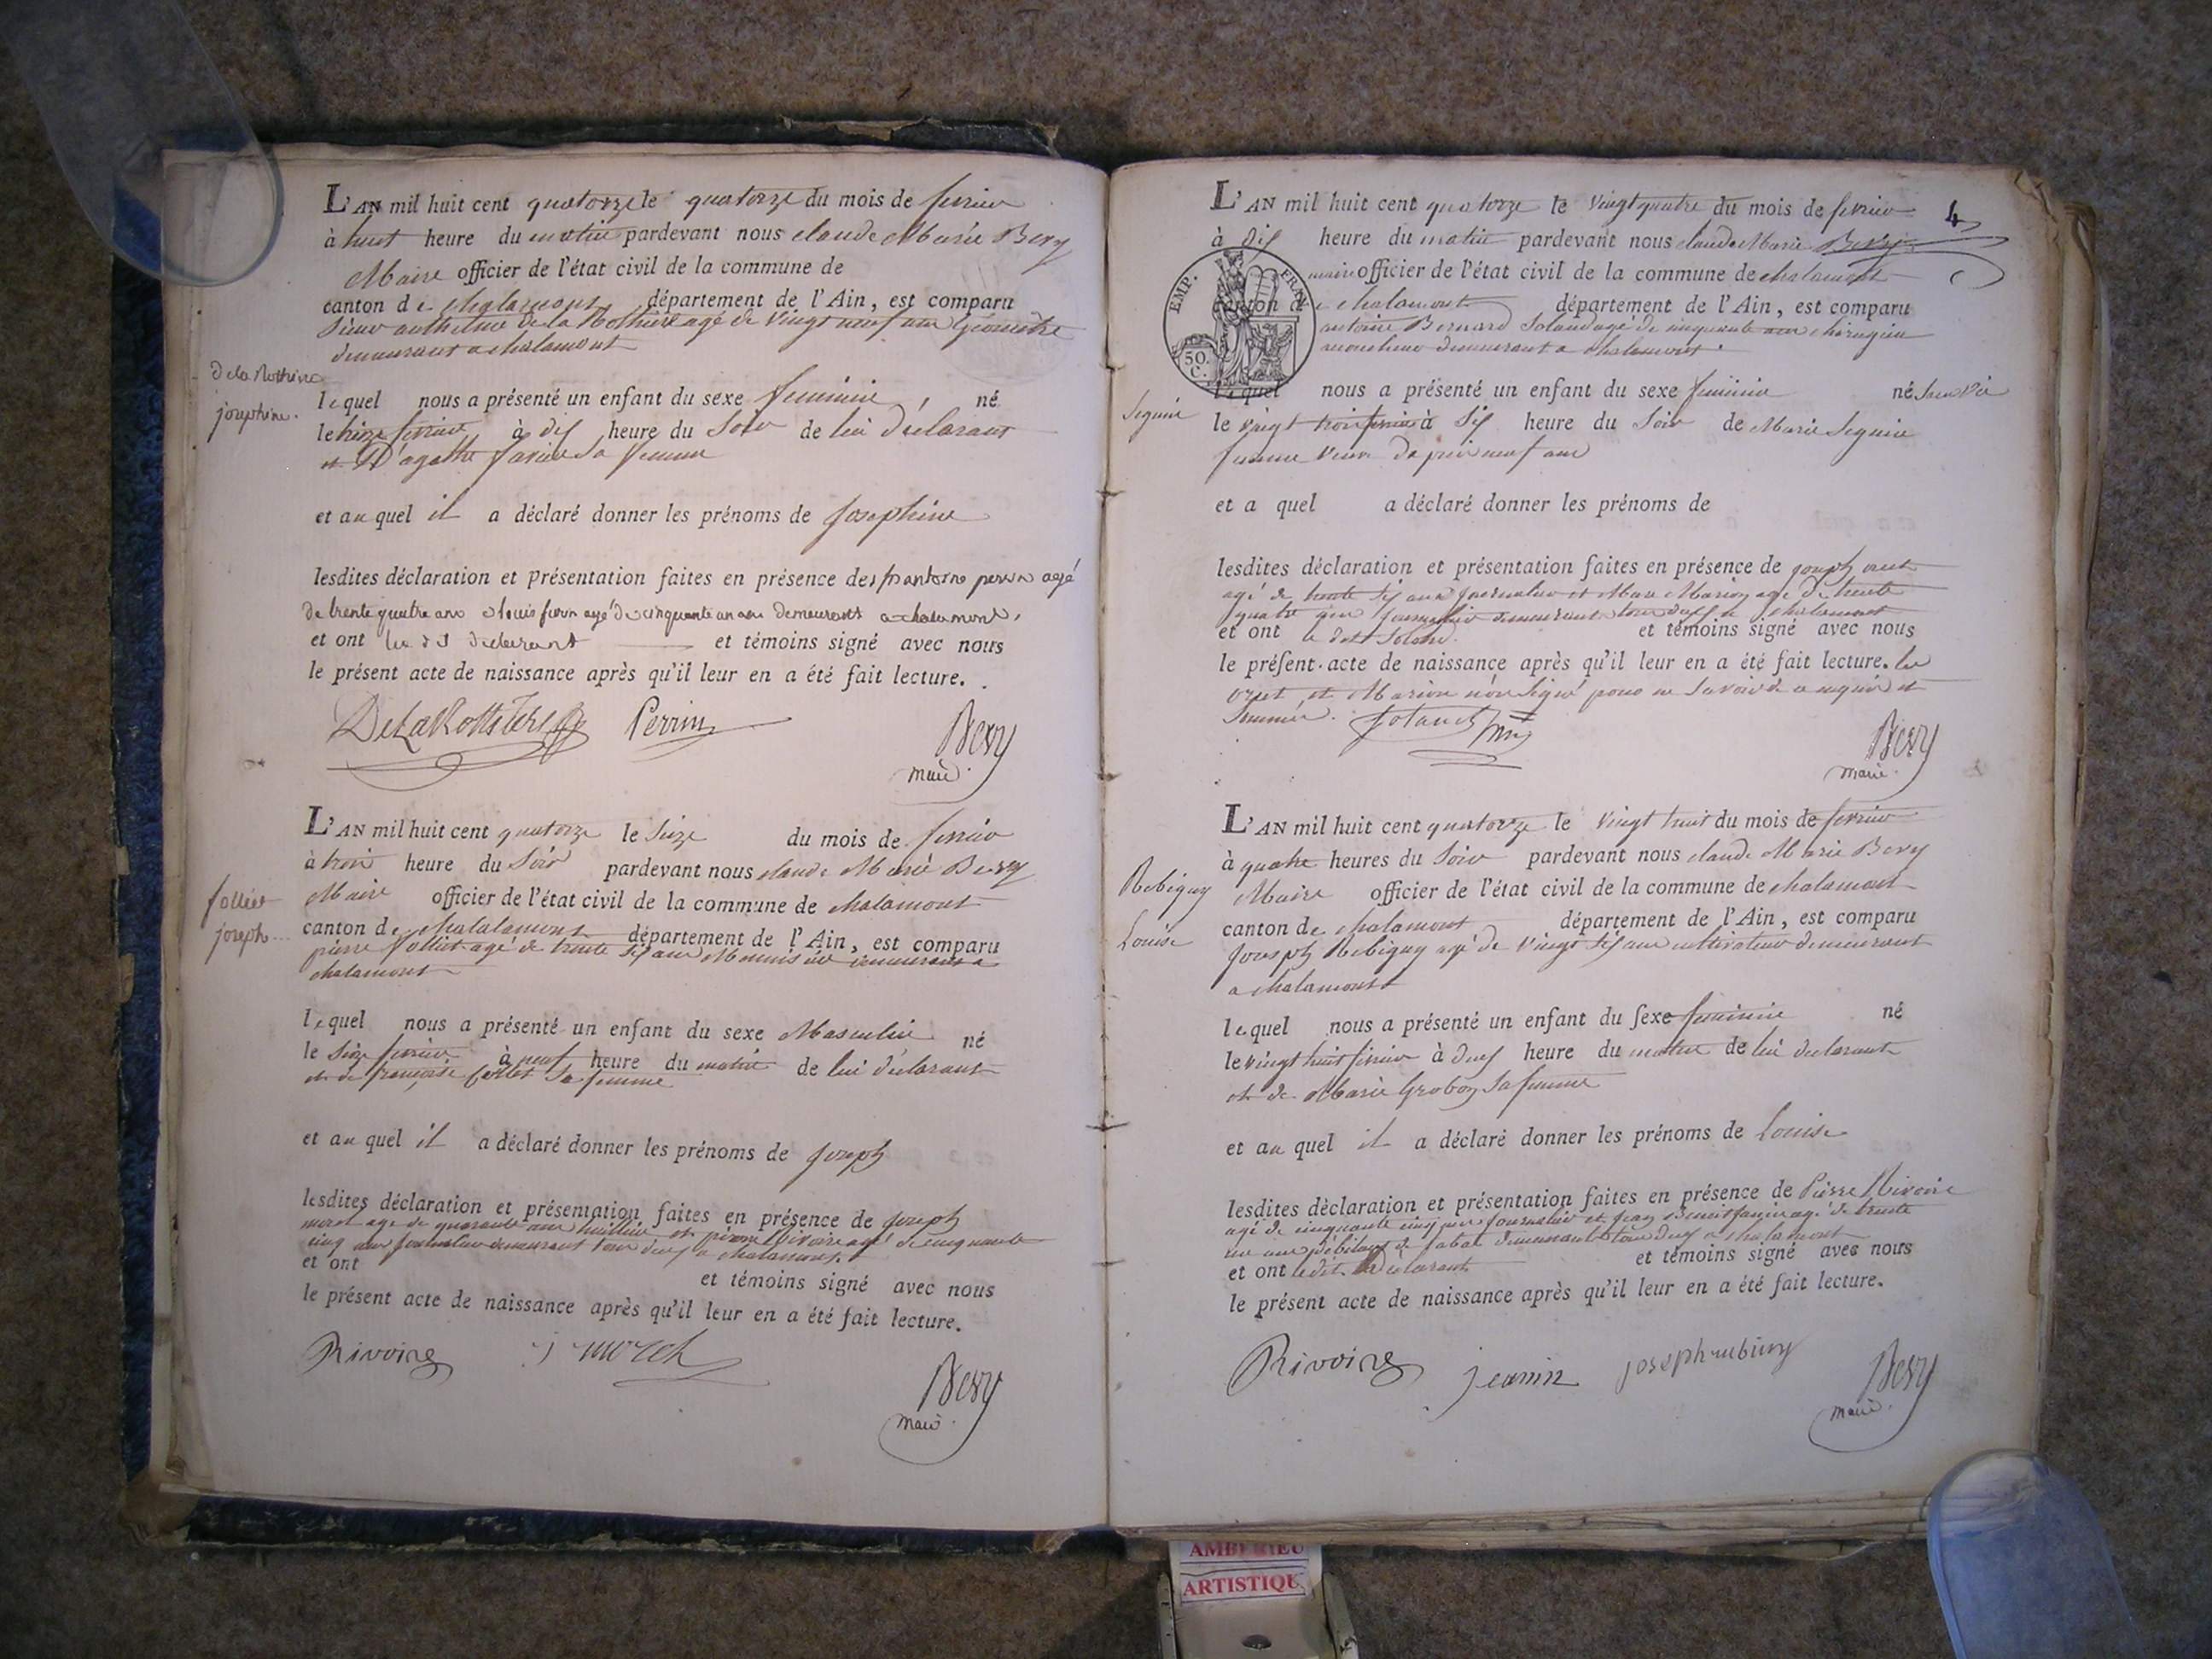 L'AN mil huit cent quatorze le quatorze du mois de fevrier
à huit heure du matin pardevant nous claude Marie Bery
Maire officier de l'état civil de la commune de
canton de chalamont département de l'Ain, est comparu
Sieur de la Rothiere agé de vingt neuf ans Géometre
demeurant a chalamont
de la Rothiere
josephine.
lequel nous a présenté un enfant du sexe feminin, né
le treize fevrier à dix heure du Soir de lui déclarant
et D'agathe sa femme
et au quel il a déclaré donner les prénoms de Josephine
lesdites déclaration et présentation faites en présence de antoine perrin agé
de trente quatre ans et louis agé de cinquante un ans demeurants a chalamont,
et ont les dit déclarant et témoins signé avec nous
le présent acte de naissance après qu'il leur en a été fait lecture.
DeLaRothiere Perrin Bery
maire
L'AN mil huit cent quatorze le Seize du mois de fevrier
à trois heure du Soir pardevant nous claude Marie Bery
Maire officier de l'état civil de la commune de chalamont
folliet
joseph
canton de chalalamont département de l'Ain, est comparu
pierre folliet agé de trente six ans Menuisier demeurant a
chalamont
lequel nous a présenté un enfant du sexe Masculin né
le Seize fevrier à neuf heure du matin de lui déclarant
et de françoise sa femme
et au quel il a déclaré donner les prénoms de Joseph
lesdites déclaration et présentation faites en présence de Joseph
morel agé de quarante ans et pierre Rivoire agé de cinquante
cinq ans journalier demeurant tous deux a chalamont.
et ont et témoins signé avec nous
le présent acte de naissance après qu'il leur en a été fait lecture.
Rivoire j morel Bery
maire
4
L'AN mil huit cent quatorze le vingt quatre du mois de fevrier
à dix heure du matin pardevant nous claude Marie Bery
maire officier de l'état civil de la commune de chalamont
canton de chalamont département de l'Ain, est comparu
antoine Bernard Soland agé de cinquante ans chirugien
accoucheur demeurant a chalamont.
EMP. FRAN.
50.
C.
Seguin
lequel nous a présenté un enfant du sexe feminin né Sans vie
le vingt trois fevrier à Six heure du Soir de Marie Seguin
femme veuve depuis neuf ans
et a quel a déclaré donner les prénoms de
lesdites déclaration et présentation faites en présence de joseph
agé de trente six ans journalier et Marion agé de trente
quatre ans journalier demeurant tous deux a chalamont
et ont le dit Soland. et témoins signé avec nous
le présent acte de naissance après qu'il leur en a été fait lecture. les
et Marion n'on Signé pour ne Savoir de ce enquis et
Sommés. Soland Bery
maire
L'AN mil huit cent quatorze le vingt huit du mois de fevrier
à quatre heures du Soir pardevant nous claude Marie Bery
Rebiguy
Louise
Maire officier de l'état civil de la commune de chalamont
canton de chalamont département de l'Ain, est comparu
Joseph Rebiguy agé de vingt six ans cultivateur demeurant
a chalamont
lequel nous a présenté un enfant du sexe feminin né
le vingt huit fevrier à deux heure du matin de lui declarant
et de Marie Grobon sa femme
et au quel il a déclaré donner les prénoms de Louise
lesdites déclaration et présentation faites en présence de Pierre Rivoire
agé de cinquante cinq ans journalier et Jean Benoit Janin agé de trente
un ans débitant de tabac demeurant tous deux a chalamont
et ont ledit déclarant et témoins signé avec nous
le présent acte de naissance après qu'il leur en a été fait lecture.
Rivoire jeanin joseph rubiny Bery
maire
AMBERIEU
ARTISTIQU